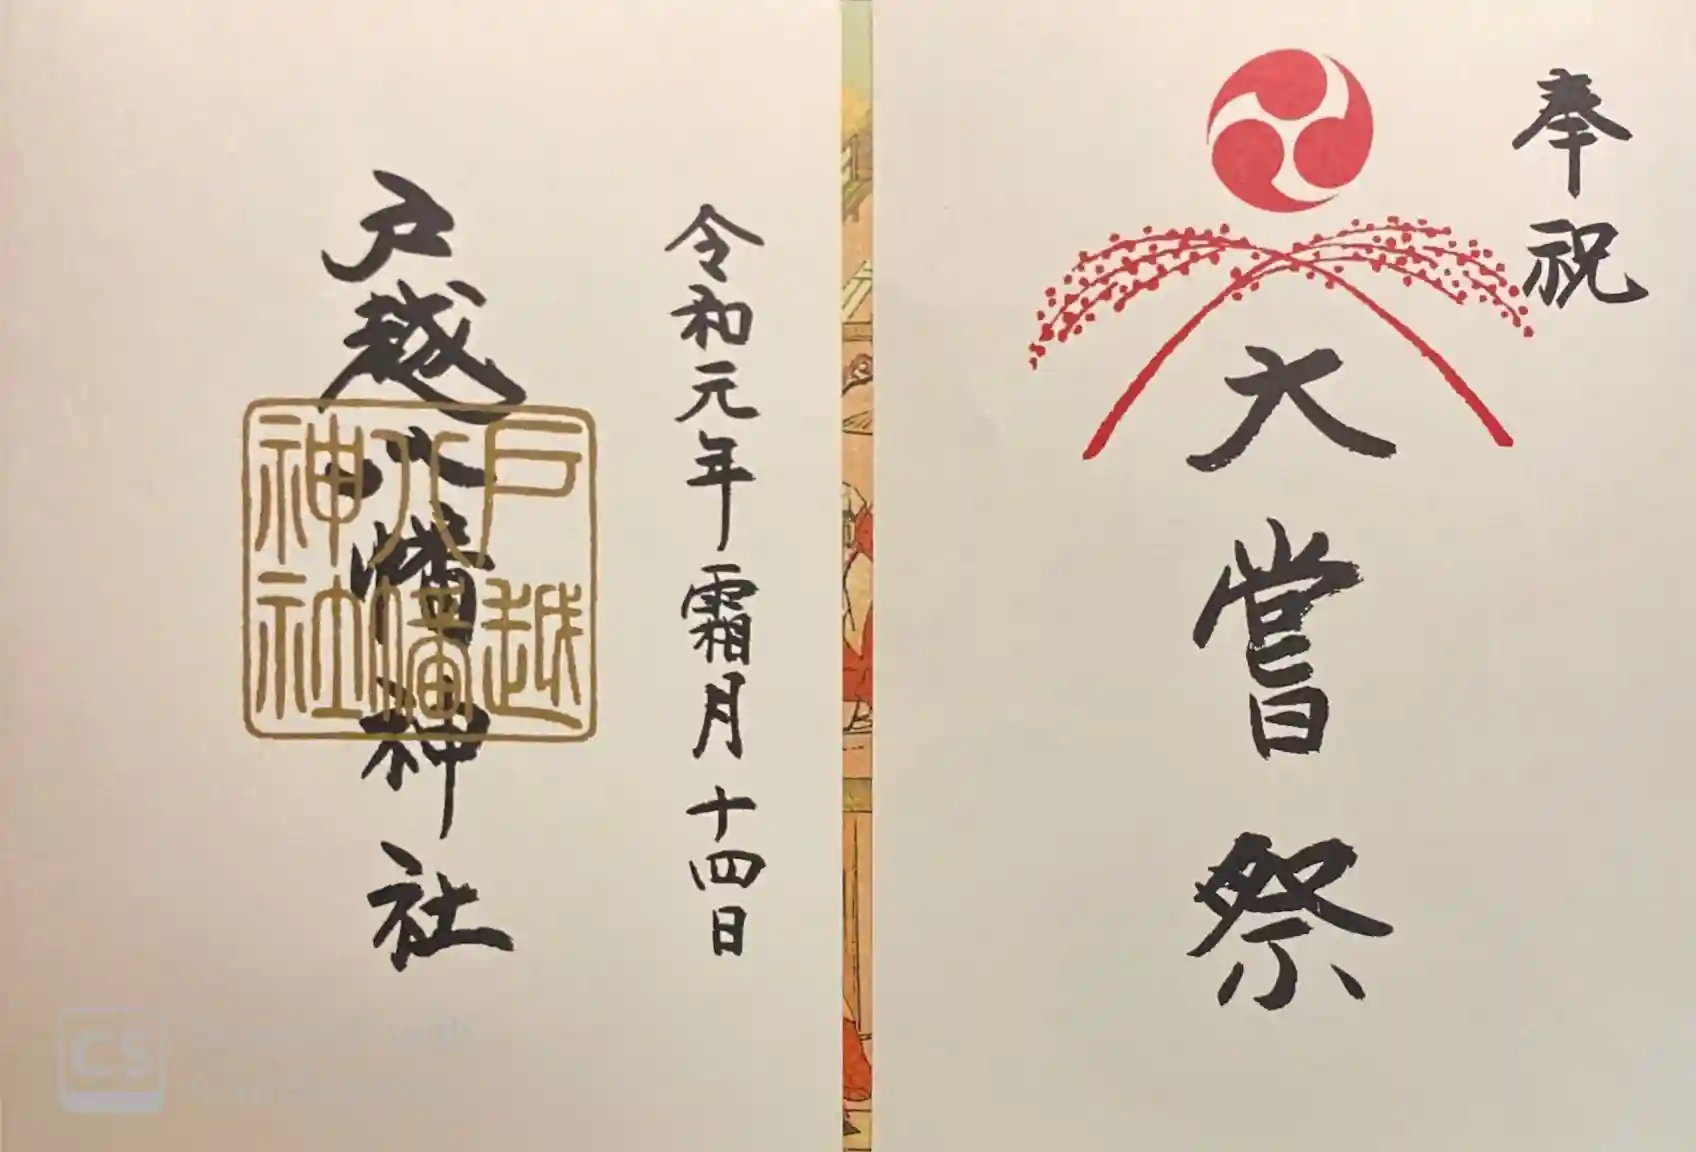 奉祝
大嘗祭
令和元年霜月十四日
戸越八幡神社
戸越
八幡
神社
CS